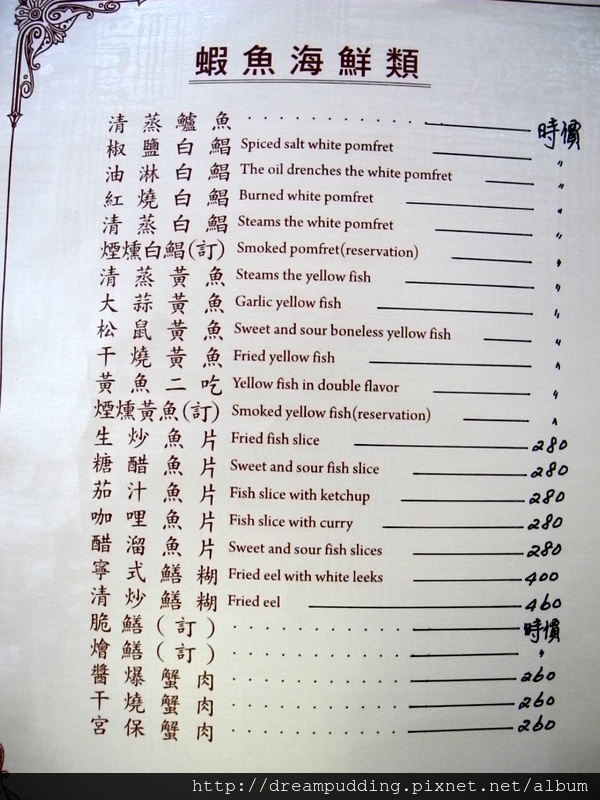 蝦魚海鮮類
清蒸鱸魚 時價
椒鹽白鯧 Spiced salt white pomfret 〃
油淋白鯧 The oil drenches the white pomfret 〃
紅燒白鯧 Burned white pomfret 〃
清蒸白鯧 Steams the white pomfret 〃
煙燻白鯧(訂) Smoked pomfret(reservation) 〃
清蒸黃魚 Steams the yellow fish 〃
大蒜黃魚 Garlic yellow fish 〃
松鼠黃魚 Sweet and sour boneless yellow fish 〃
干燒黃魚 Fried yellow fish 〃
黃魚二吃 Yellow fish in double flavor 〃
煙燻黃魚(訂) Smoked yellow fish(reservation) 〃
生炒魚片 Fried fish slice 280
糖醋魚片 Sweet and sour fish slice 280
茄汁魚片 Fish slice with ketchup 280
咖哩魚片 Fish slice with curry 280
醋溜魚片 Sweet and sour fish slices 280
寧式鱔糊 Fried eel with white leeks 400
清炒鱔糊 Fried eel 460
脆鱔(訂) 時價
燴鱔(訂) 〃
醬爆蟹肉 260
干燒蟹肉 260
宮保蟹肉 260
http://dreampudding.pixnet.net/album